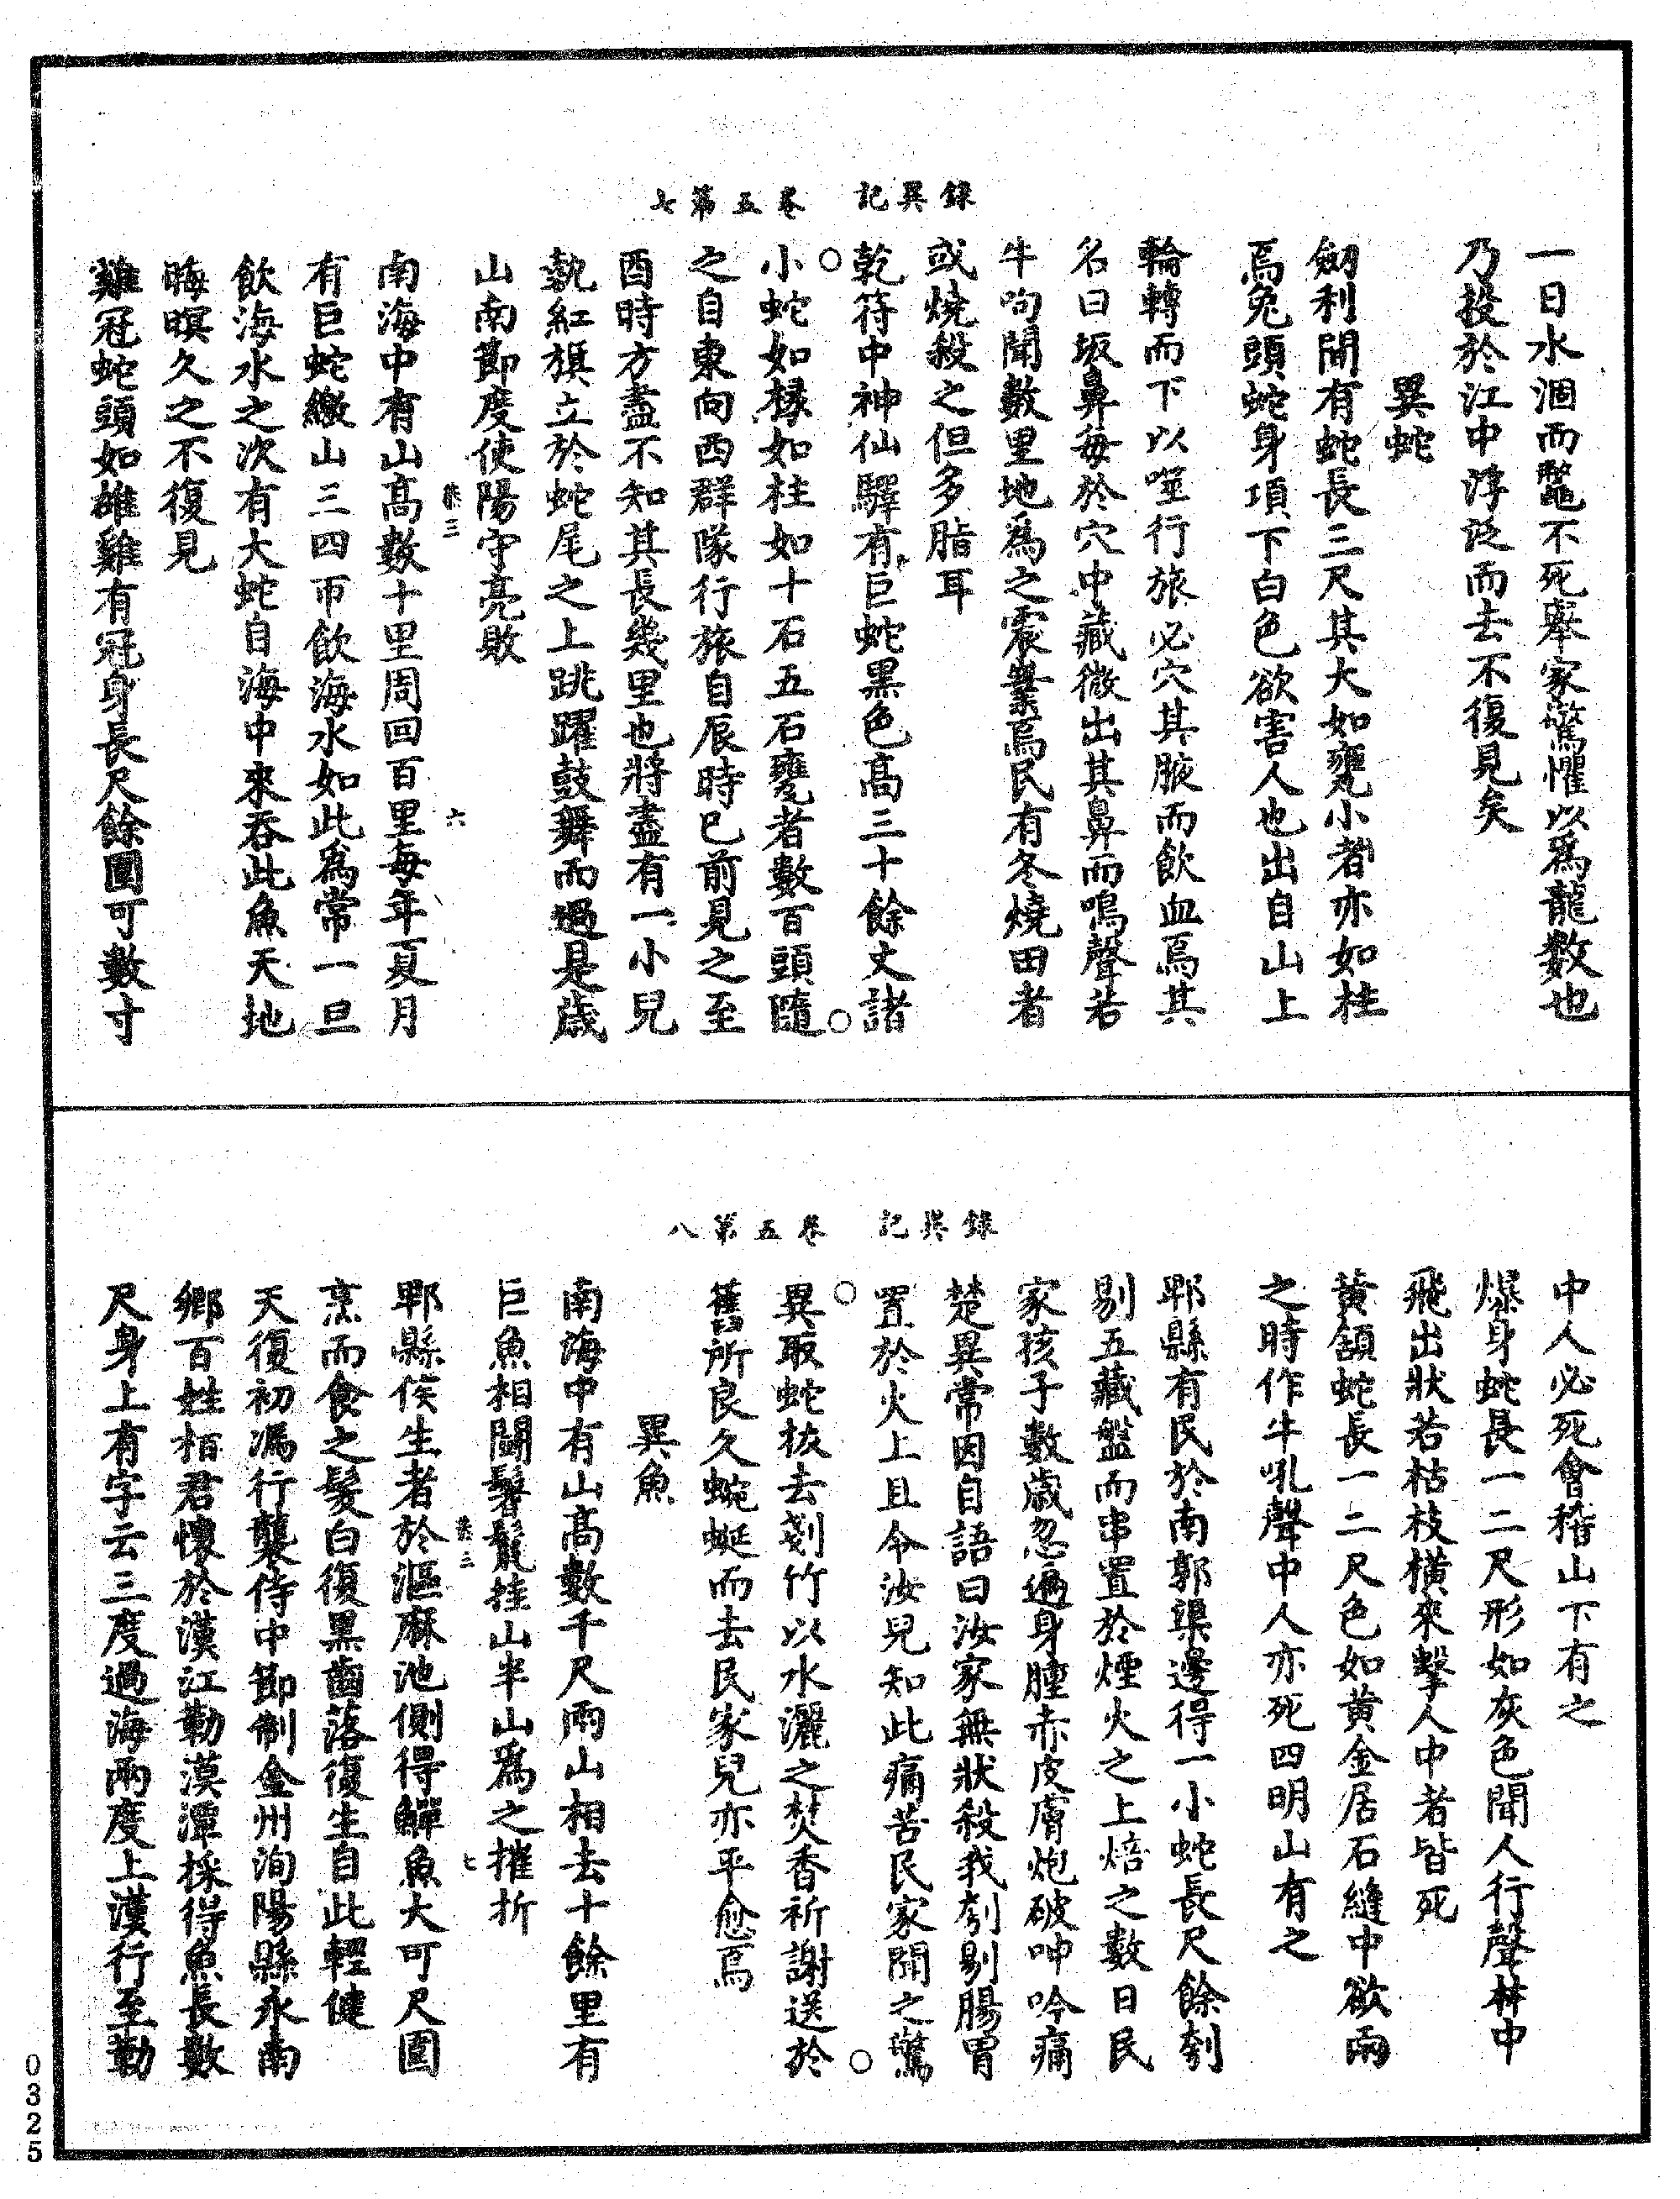 錄異記　卷五第七
一日水涸而鼈不死舉家驚懼以爲龍數也
乃投於江中浮泛而去不復見矣
異蛇
劒利閒有蛇長三尺其大如甕小者亦如柱
焉兔頭蛇身項下白色欲害人也出自山上
輪轉而下以噬行旅必穴其腋而飲血焉其
名曰坂鼻每於穴中藏微出其鼻而鳴聲若
牛呴聞數里地爲之震㩧焉民有冬燒田者
或燒殺之但多脂耳
乾符中神仙驛有巨蛇黑色高三十餘丈諸
小蛇如椽如柱如十石五石甕者數百頭隨
之自東向西群隊行旅自辰時已前見之至
酉時方盡不知其長幾里也將盡有一小兒
執紅旗立於蛇尾之上跳躍鼓舞而過是歲
山南節度使陽守亮敗
錄三　六
南海中有山高數十里周回百里每年夏月
有巨蛇繳山三四帀飲海水如此爲常一旦
飲海水之次有大蛇自海中來吞此魚天地
晦暝久之不復見
雞冠蛇頭如雄雞有冠身長尺餘圍可數寸
錄異記　卷五第八
中人必死會稽山下有之
爆身蛇長一二尺形如灰色聞人行聲林中
飛出狀若枯枝橫來擊人中者皆死
黃頷蛇長一二尺色如黃金居石縫中欲雨
之時作牛吼聲中人亦死四明山有之
郫縣有民於南郭渠邊得一小蛇長尺餘刳
剔五藏盤而串置於煙火之上焙之數日民
家孩子數歲忽遍身腫赤皮膚炮破呻吟痛
楚異常因自語曰汝家無狀殺我刳剔腸胃
置於火上且令汝兒知此痛苦民家聞之驚
異取蛇拔去剗竹以水灑之焚香祈謝送於
舊所良久蜿蜒而去民家兒亦平愈焉
異魚
南海中有山高數千尺兩山相去十餘里有
巨魚相鬭鬐鬣挂山半山爲之摧折
錄三　七
郫縣侯生者於漚麻池側得鱓魚大可尺圍
烹而食之髮白復黑齒落復生自此輕健
天復初馮行襲侍中節制金州洵陽縣永南
鄉百姓柏君懷於漢江勒漠潭採得魚長數
尺身上有字云三度過海兩度上漢行至勒
0325